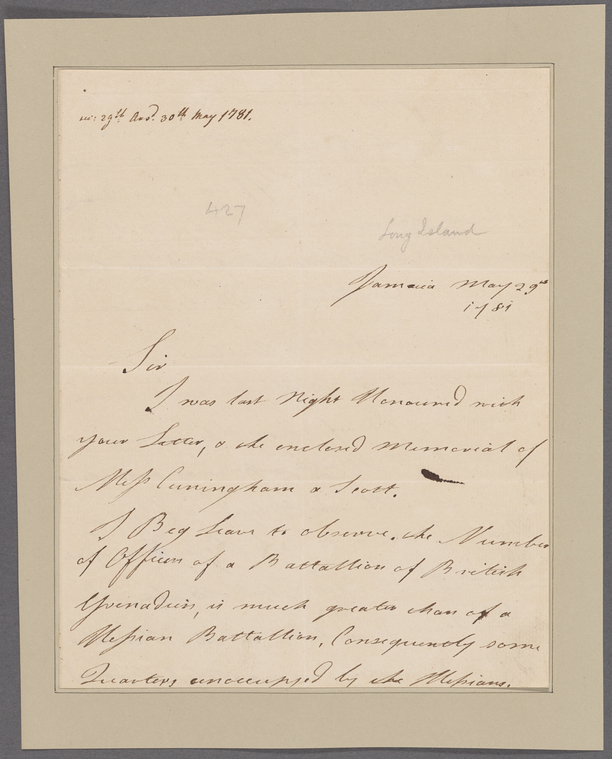 29th Ansd. 30th May 1781.
427
Long Island
Jamaica May 29th
1781
Sir
I was last Night Honoured with
your Letter, & the enclosed Memorial of
Mess Cuningham & Scott.
I Beg Leave to observe, the Number
of Officers of a Battallion of British
Grenadiers, is much greater than of a
Hessian Battallion, Consequently some
Quarters unoccupyd by the Hessians.